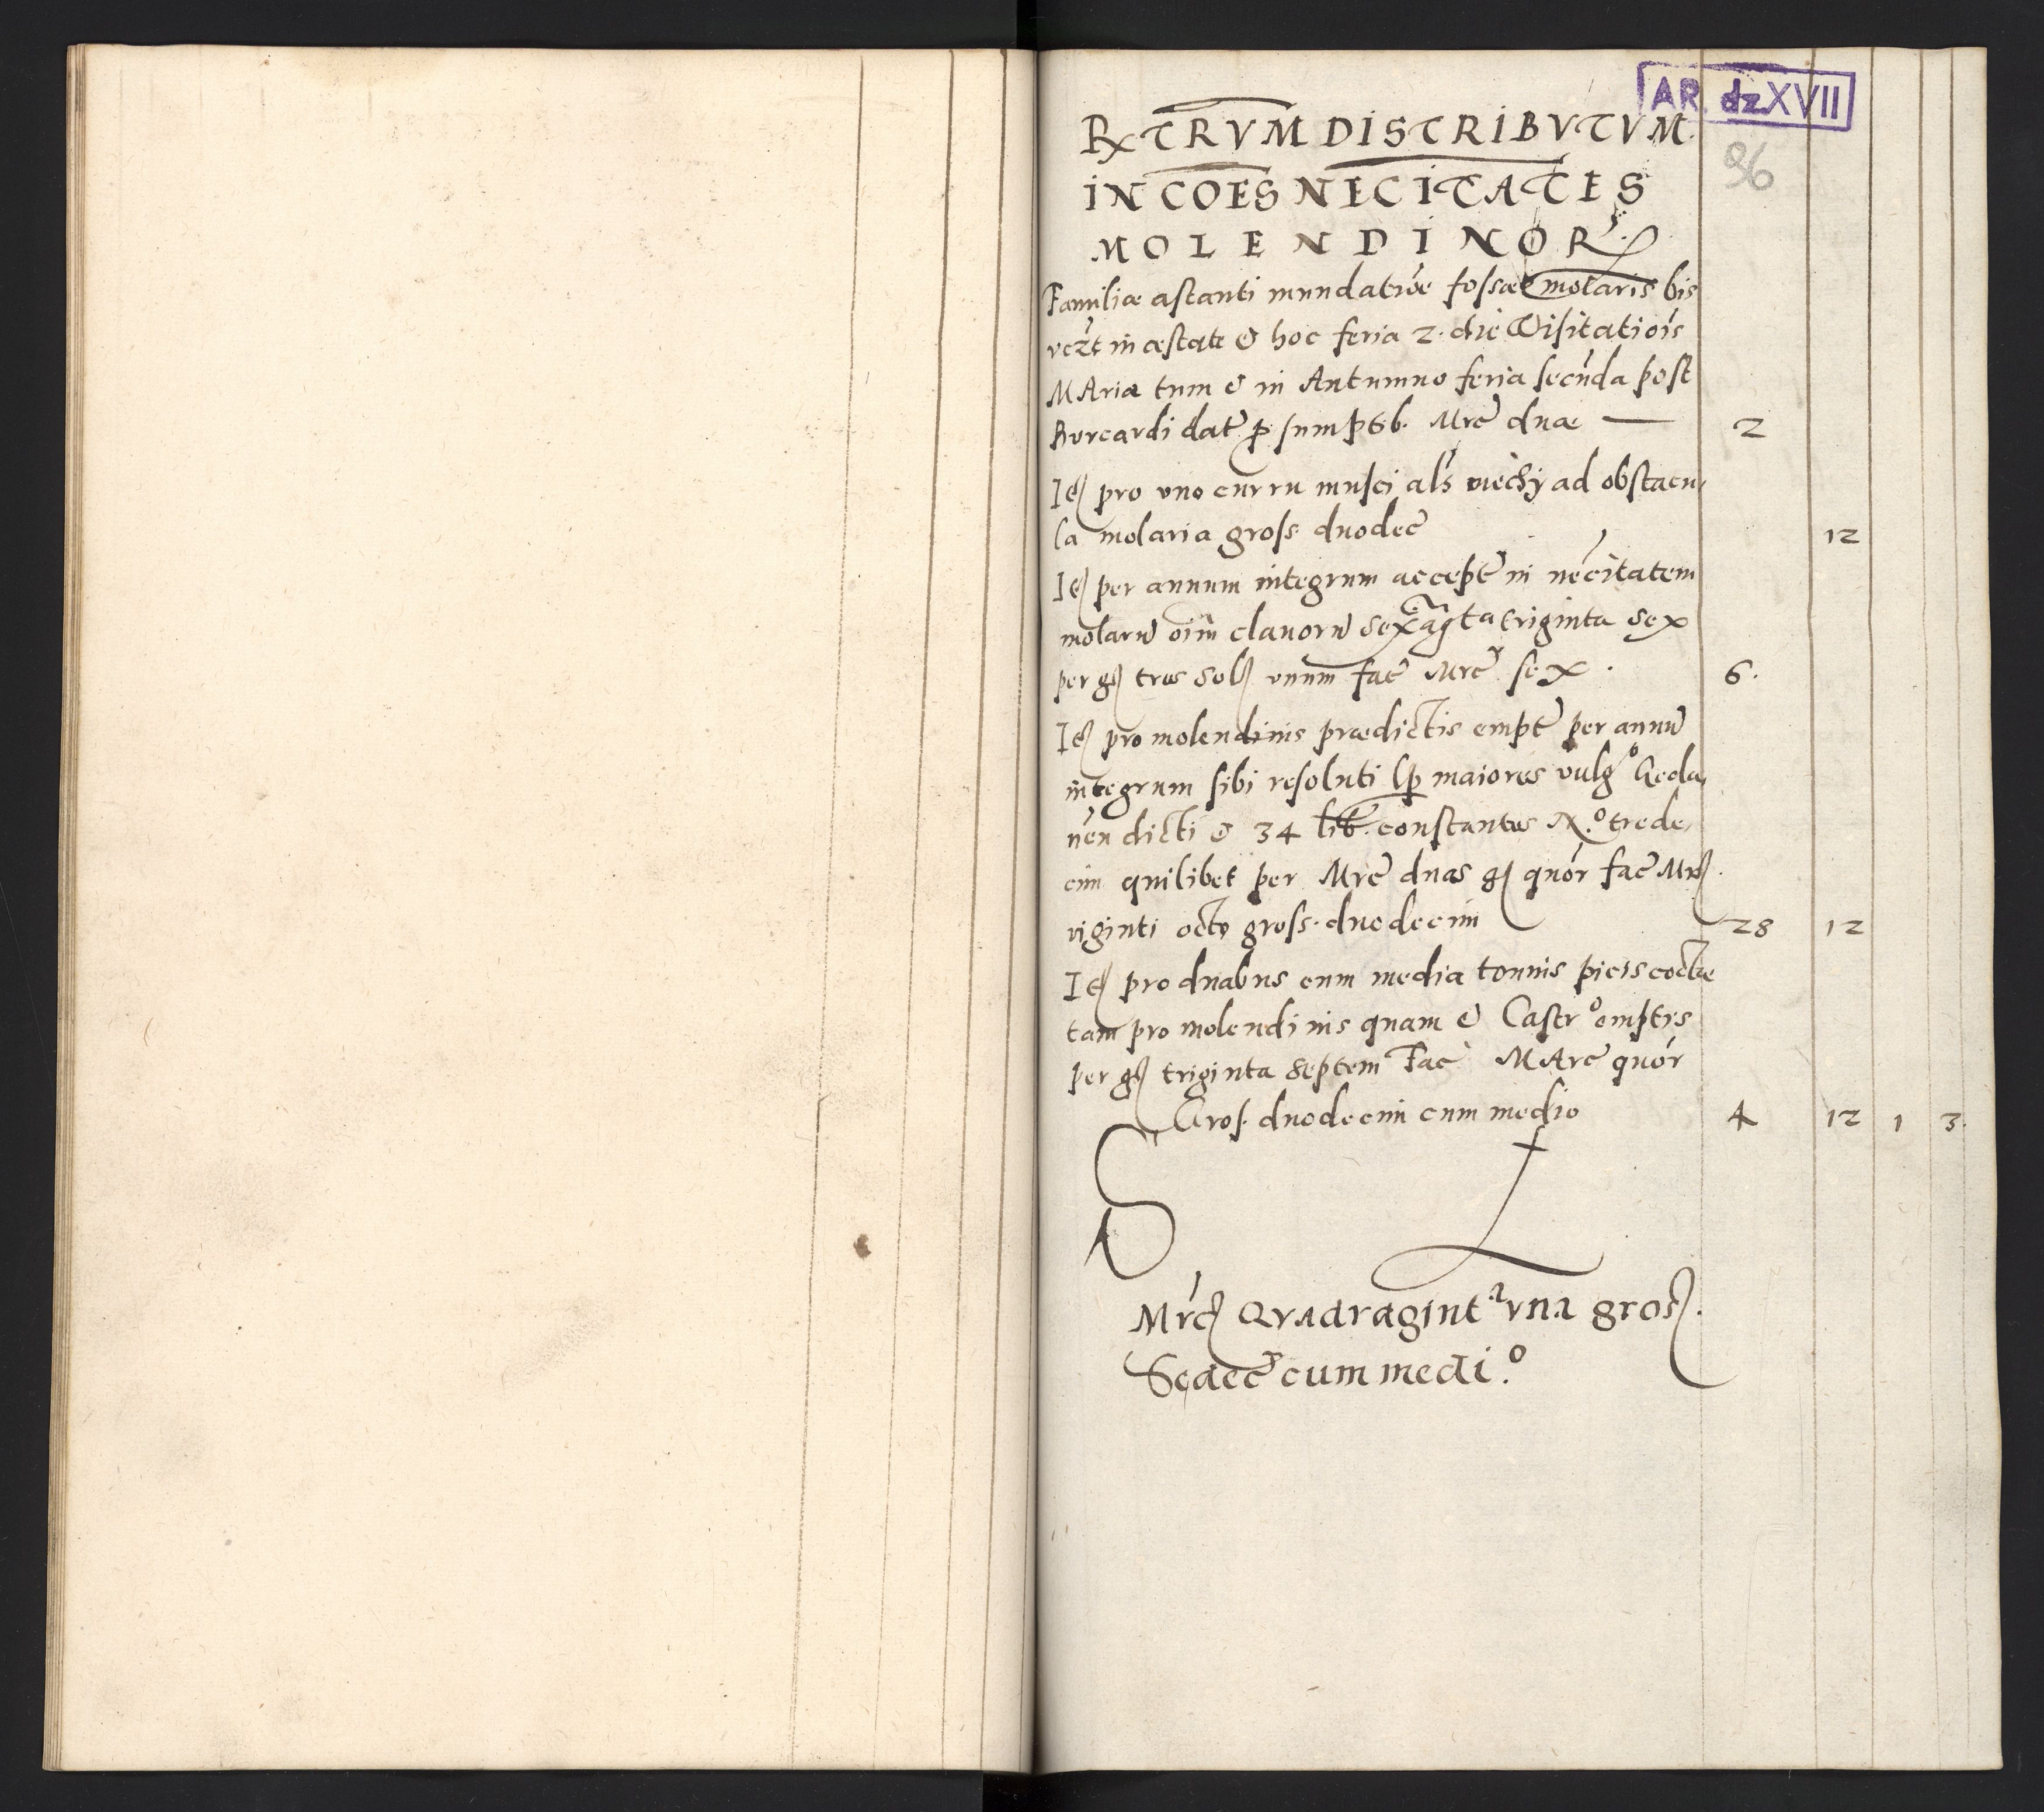 AR dz XVII
96
RX TRVM DISTRIBVTVM
IN COES NECITATES
MOLENDINOR
Familiæ astanti mundatioe fossæ molaris bis
vczt in æstate & hoc feria 2. die Visitatiois
MAriæ tum & in Autumno feria secuda post
Burcardi dat p sumptib. Mrc duæ — 2
It pro uno curru musci als mechy ad obstacu,
la molaria gross. duodec 12
It per annum integrum accept in necitatem
molaru oim clauoru sexagta triginta sex
per gs tres sols unum fac Mrc sex . 6.
It pro molendinis prædictis empt per annu
integrum sibi resoluti lp maiores vulgo Geda,
nen dicti & 34 lib. constantes No. trede,
cim quilibet per Mrc duas gs quor fac Mrs.
viginti octo gross. duodecim 28 12
It pro duabus cum media tonnis picis coctæ
tam pro molendinis quam & Castro emptis
per gs triginta septem Fac MArc quor
Gros. duodecim cum medio 4 12 1 3.
Sa
Mrcs Qvadraginta vna gros.
Sedec cum medio